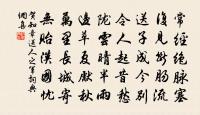 常經絕脈塞
復見斷腸流
送子成今別
令人起昔愁
隴雲晴半雨
邊草夏秋
萬里長城寄
無貽漢國憂
賀知章送人之軍詞典
網